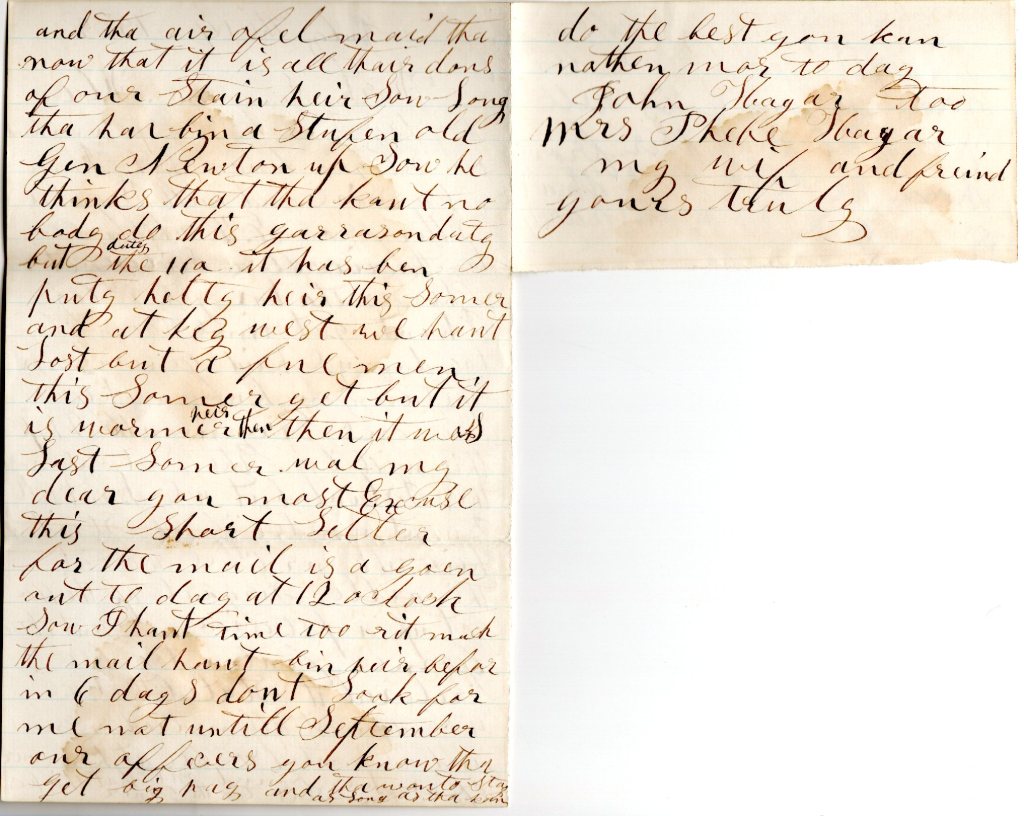 and tha air ofel maid tha
now that it is all thair dons
of our Stain heir Sow Long
tha har bin a Stufen old
Gen Newton up Sow he
thinks that tha kant no
body do this garrason duty
but the 110 it has ben
duty
puty hotty heir this Somer
and at key west we hant
Lost but a fue men
this Somer yet but it
is wormer heir then then it was
Last Somer. wal my
dear you most Excuse
this Short Letter
for the mail is a goen
out to day at 12 oClock
Sow I hant time too rit muh
the mail hant bin heir befor
in 6 days dont Look for
me not untill September
our officers you know tha
get big pay and tha won to Stay
as Long as tha kan
do the best you kan
nothen mor to day
John to0
Mrs Phebe
my wif and freind
yours truly